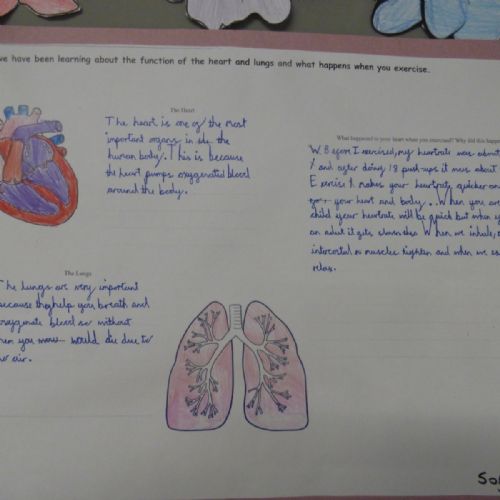 we have been learning about the function of the heart and lungs and what happens when you exercise.
The Heart
The heart is one of the most
important organs in side the
human body. This is because
the heart pumps oxygenated blood
around the body.
What happened to your heart when you exercised? Why did this happen
W. Before I exercised, my heartrate was about
and after doing 18 push-ups it was about
Exercise makes your heartrate quicker
your heart and body... When you are
child your heartrate will be quick but when
an adult it gets slower. When we inhale,
intercostal muscles tighten and when we
relax.
The Lungs
The lungs are very important
because they help you breath and
oxygenate blood so without
them you would die due to
air.